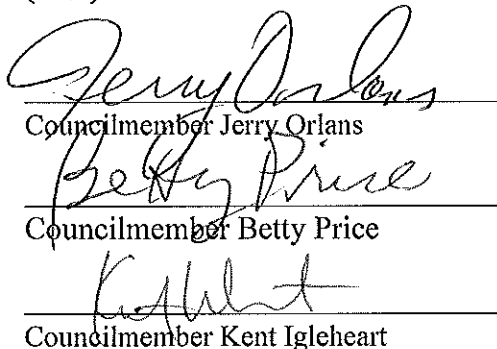 Jerry Orlans
Councilmember Jerry Orlans
Betty Price
Councilmember Betty Price
Councilmember Kent Igleheart